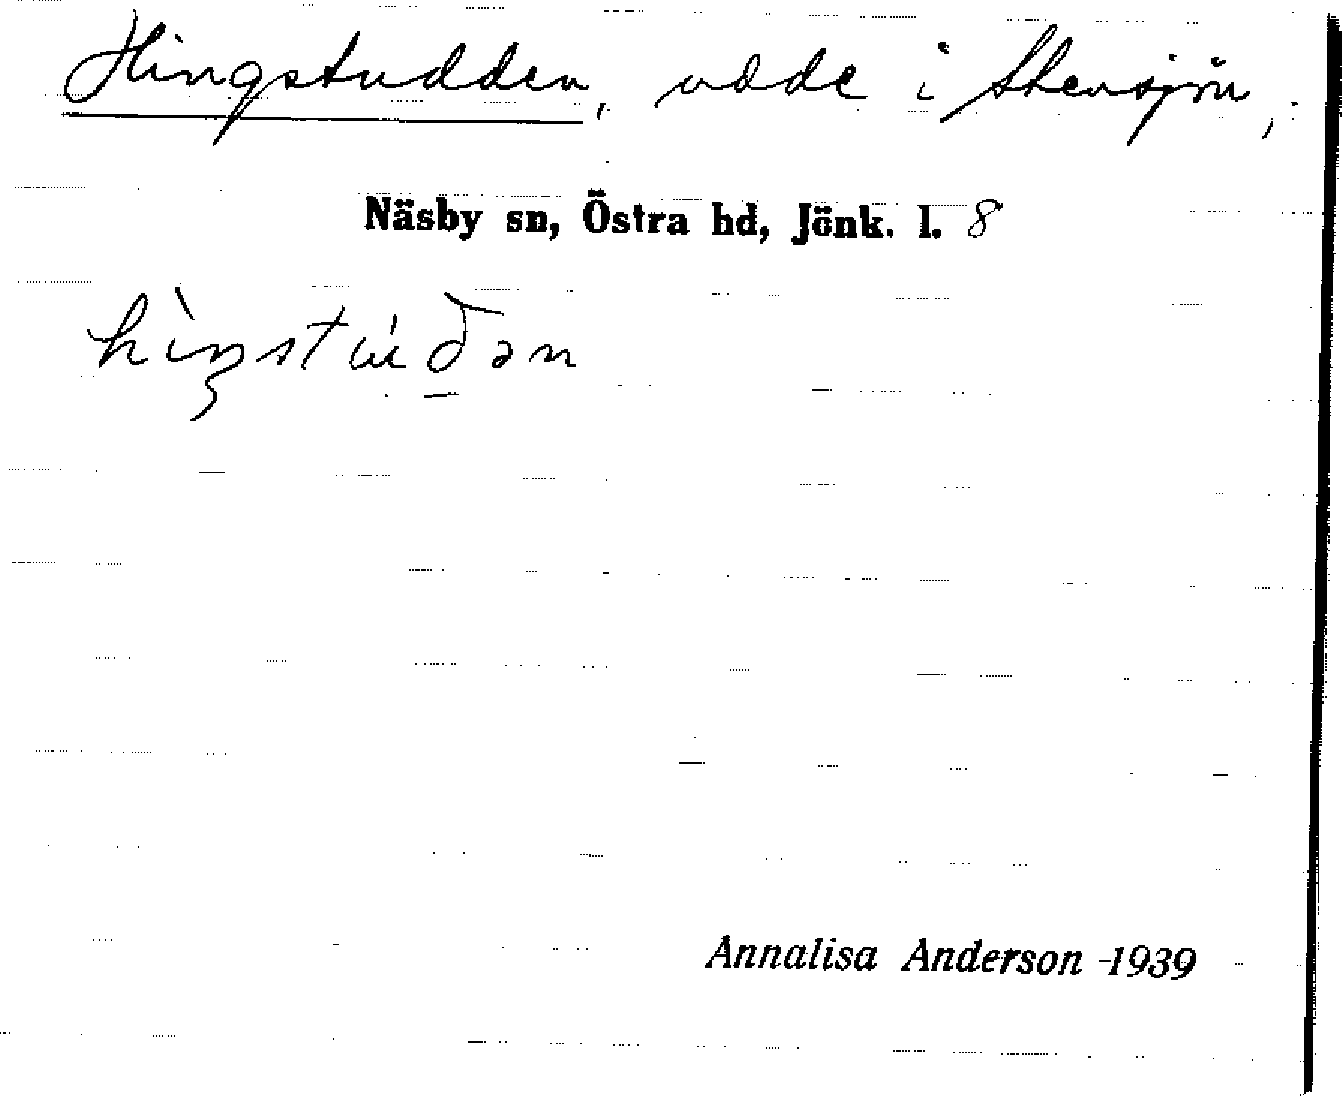 Hingstudden, udde i Stensjön,
Näsby sn, Östra hd, Jönk. l. 8
Annalisa Anderson -1939